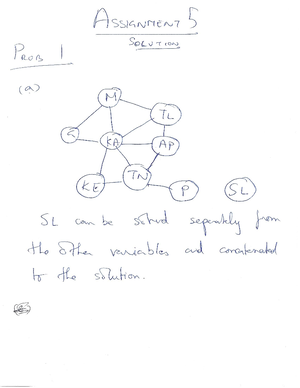 ASSIGNMENT 5
SOLUTION
PROB 1
(a)
M
TL
G
KA
AP
KE
TN
P
SL
SL can be solved separately from
the other variables and concatenated
to the solution.